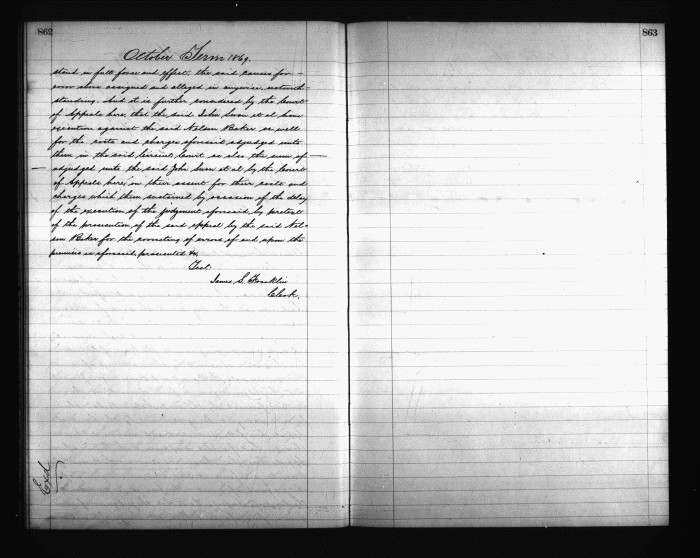 862
863
October Term 1869.
stand in full force and effect, the said causes for-
error above assigned and alleged in anywise notwith-
standing. And it is further considered by the Court
of Appeals here, that the said John et al have
execution against the said Nelson Baker as well
for the costs and charges aforesaid adjudged unto
them in the said Circuit Court as also the sum of —
— adjudged unto the said John et al by the Court
of Appeals here, in their assent for their costs and
charges which them sustained by occasion of the delay
of the execution of the judgment aforesaid, by pretext
of the prosecution of the said appeal by the said Nel-
son Baker for the correcting of errors of and upon the
premises as aforesaid, prosecuted &c,
Test.
James S. Franklin
Clerk.
Exd